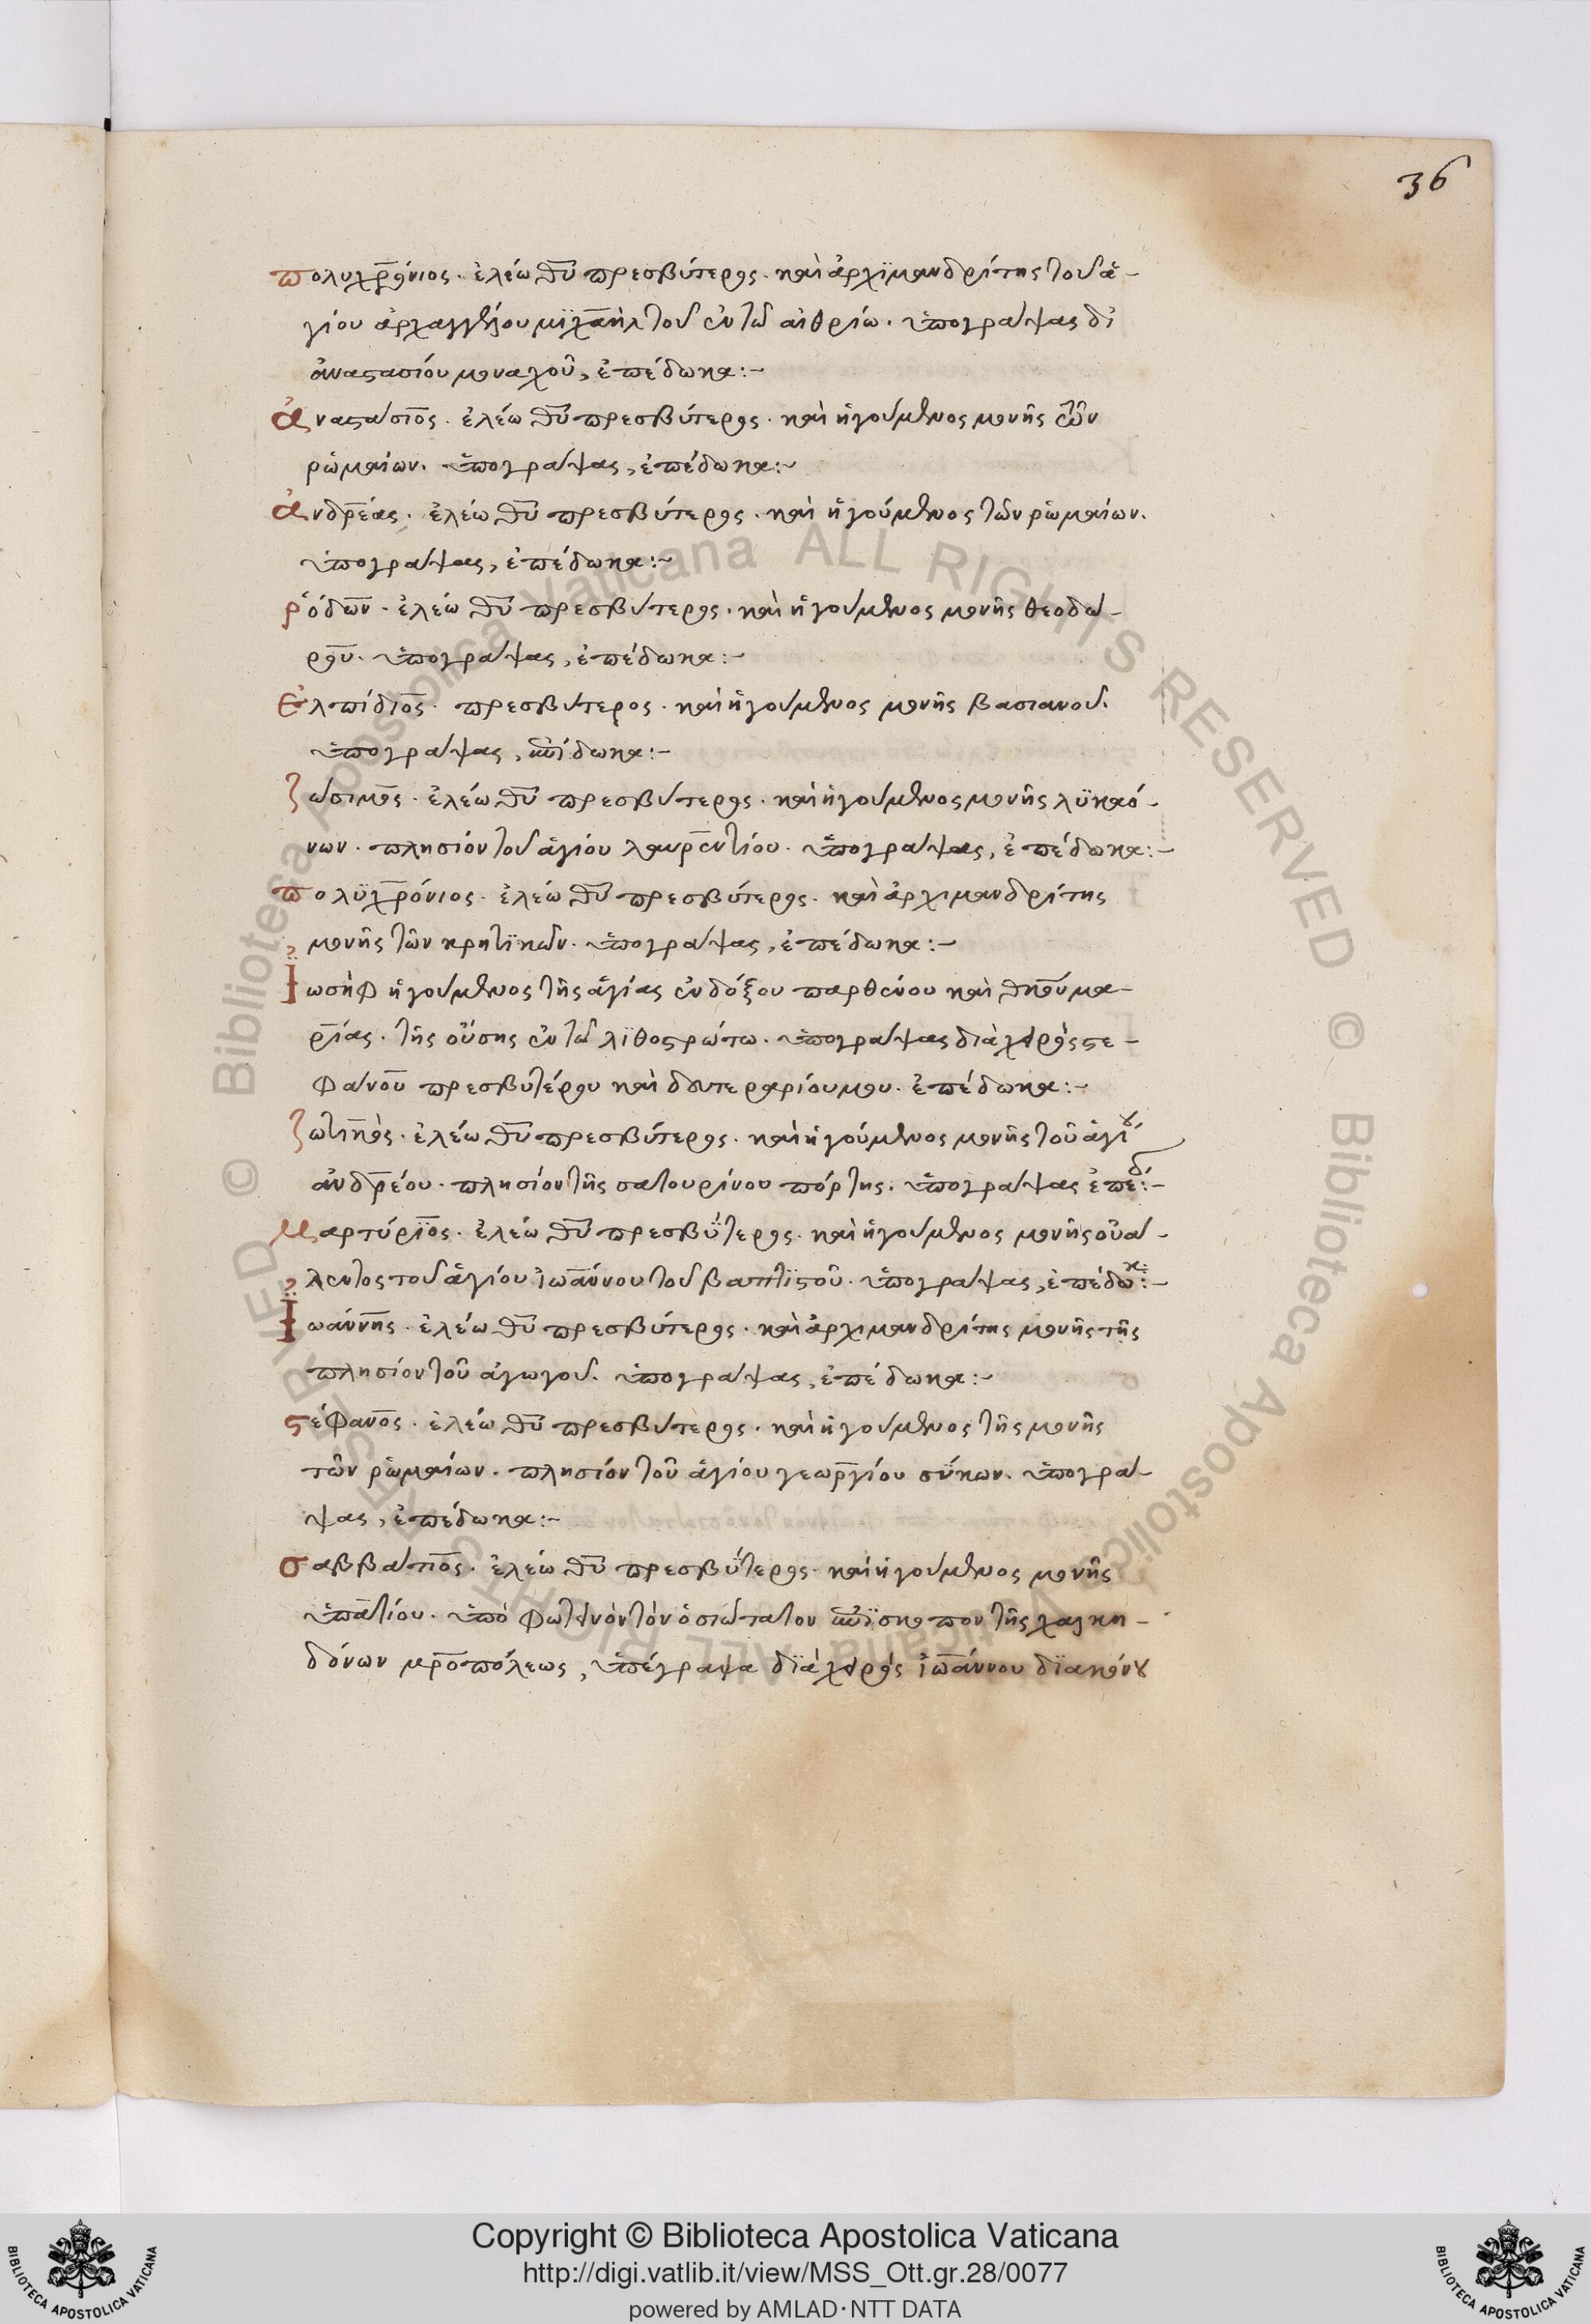 36
πολυχρόνιος · ἐλέω θῦ πρεσβύτερος · καὶ ἀρχϊμανδρίτης τοῦ ἁ-
γίου ἀρχαγγέλου μϊχαὴλ τοῦ ἐν τῶ αἰθρίω · ὑπογράψας δι
ἀναστασίου μοναχοῦ, ἐπέδωκα:-
ἀναστάσιος · ἐλέω θῦ πρεσβύτερος · καὶ ἡγούμενος μονῆς τῶν
ρωμαίων. ὑπογράψας, ἐπέδωκα:-
ἀνδρέας · ἐλέω θῦ πρεσβύτερος · καὶ ἡγούμενος τῶν ρωμαίων.
ὑπογράψας, ἐπέδωκα:-
ῥόδων · ἐλέω θῦ πρεσβύτερος · καὶ ἡγούμενος μονῆς θεοδώ-
ρου · ὑπογράψας, ἐπέδωκα:-
ἐλπίδιος · πρεσβύτερος · καὶ ἡγούμενος μονῆς βασιανοῦ.
ὑπογράψας, ἐπέδωκα:-
ζώσιμος · ἐλέω θῦ πρεσβύτερος · καὶ ἡγούμενος μονῆς λϋκαό-
νων · πλησιόν τοῦ ἁγίου λαυρεντίου · ὑπογράψας, ἐπέδωκα:-
πολϋχρόνιος · ἐλέω θῦ πρεσβύτερος · καὶ ἀρχιμανδρίτης
μονῆς τῶν κρητϊκῶν · ὑπογράψας, ἐπέδωκα:-
Ἰωσὴφ ἡγούμενος τῆς ἁγίας ἐνδόξου παρθένου καὶ θηκοῦ μα-
ρίας · τῆς οὔσης ἐν τῶ λϊθοστρώτω · ὑπογράψας διὰ χειρὸς στε-
φάνου πρεσβυτέρου καὶ δευτεραρίου μου · ἐπέδωκα:-
ζωτικὸς · ἐλέω θῦ πρεσβύτερος · καὶ ἡγούμενος μονῆς τοῦ ἁγίου
ἀνδρέου · πλησίον τῆς σατουρίνου πόρτης · ὑπογράψας ἐπέδ:-
Μαρτύρϊος · ἐλέω θῦ πρεσβύτερος · καὶ ἡγούμενος μονῆς οὐά-
λεντος τοῦ ἁγίου ἰωάννου τοῦ βαπτϊστοῦ · ὑπογράψας, ἐπέδωκ:-
Ἰωάννης · ἐλέω θῦ πρεσβύτερος · καὶ ἀρχιμανδρίτης μονῆς τῆς
πλησίον τοῦ ἀγωγοῦ. ὑπογράψας, ἐπέδωκα:-
στέφανος · ἐλέω θῦ πρεσβύτερος · καὶ ἡγούμενος τῆς μονῆς
τῶν ρωμαίων · πλησιόν τοῦ ἁγίου γεωργίου σύκων · ὑπογρά-
ψας, ἐπέδωκα:-
σαββάτιος · ἐλέω θῦ πρεσβύτερος · καὶ ἡγούμενος μονῆς
ὑπατίου · ὑπὸ φωτεινὸν τὸν ὁσιώτατον ἐπΐσκοπον τῆς χαλκη-
δόνων μροπόλεως, ὑπέγραψα δϊὰ χειρὸς ἰωάννου δϊακόνου
Copyright © Biblioteca Apostolica Vaticana
http://digi.vatlib.it/view/MSS_Ott.gr.28/0077
powered by AMLAD·NTT DATA
BIBLIOTECA APOSTOLICA VATICANA
BIBLIOTECA APOSTOLICA VATICANA
© Biblioteca Apostolica Vaticana ALL RIGHTS RESERVED © Biblioteca Apostolica Vaticana ALL RIGHTS RESERVED